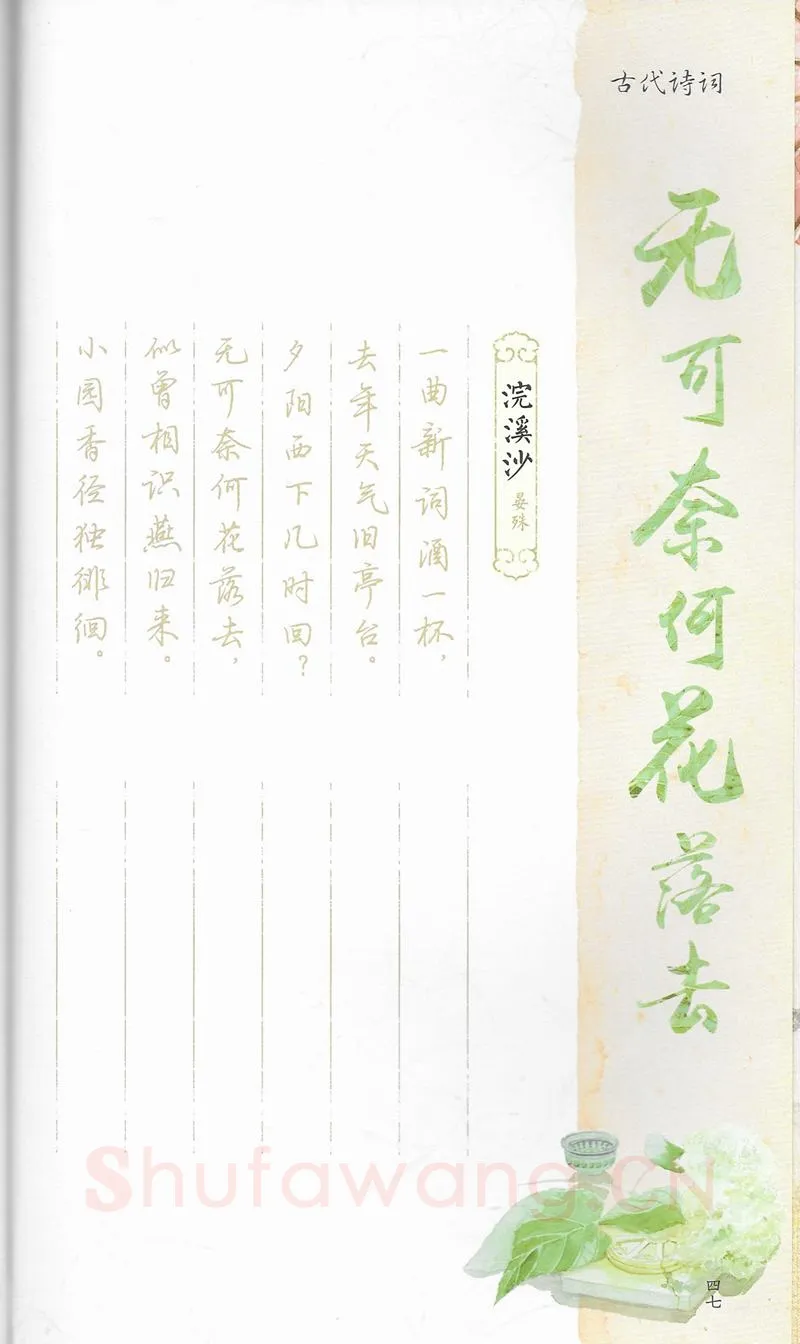 古代诗词
无可奈何花落去
浣溪沙
晏殊
一曲新词酒一杯，
去年天气旧亭台。
夕阳西下几时回？
无可奈何花落去，
似曾相识燕归来。
小园香径独徘徊。
Shufawang.CN
四七